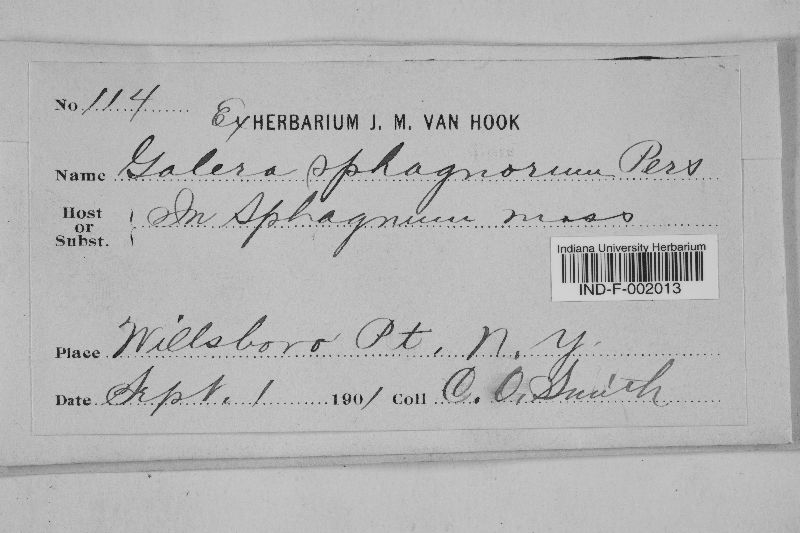 No 114
Ex HERBARIUM J. M. VAN HOOK
Name Galera sphagnorum Pers
Host or Subst. In Sphagnum moss
Indiana University Herbarium
IND-F-002013
Place Willsboro Pt, N. Y.
Date Sept. 1 1901 Coll C. O. Smith